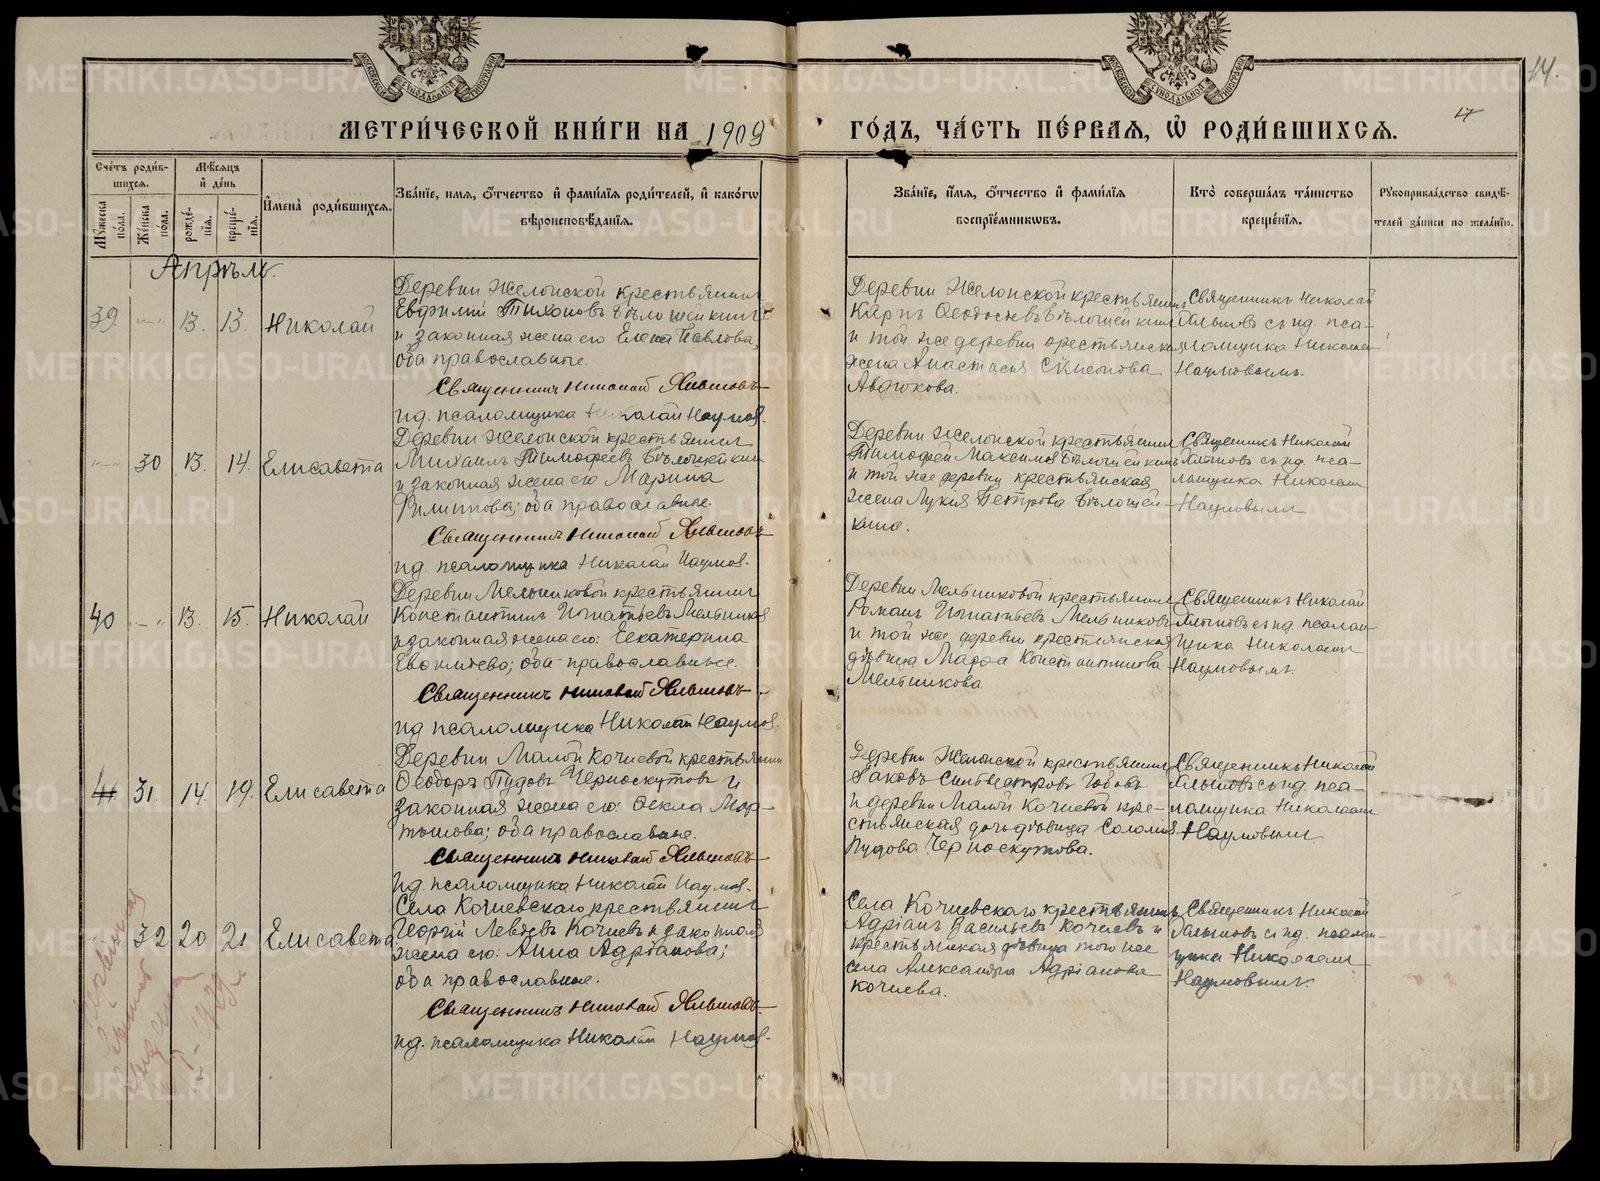 МЕТРИ́ЧЕСКОЙ КНИ́ГИ НА 1909 ГО́ДЪ, ЧА́СТЬ ПЕ́РВАЯ, Ѡ РОДИ́ВШИХСЯ.
14.
Счетъ роди́вшихся.
Му́жеска по́ла.
Же́нска по́ла.
Мѣ́сяцъ и де́нь
рожде́нїя.
креще́нїя.
Имена̀ роди́вшихся.
Зва́нїе, имя, ѻтчество и фами́лїя роди́телей, и како́гѡ вѣроисповѣ́данїя.
Зва́нїе, имя, ѻтчество и фами́лїя воспрїе́мникѡвъ.
Кто̀ соверша́лъ та́инство креще́нїя.
Рукоприкла́дство свидѣ́телей за́писи по жела́нїю.
Апрѣль.
39. 13. 13. Николай
Деревни Желонской крестьянинъ
Евфимій Тихоновъ Бѣлошейкинъ
и законная жена его Елена Павлова,
оба православные.
Священникъ Николай
и.д. псаломщика Николай Наумов.
Деревни Желонской крестьянинъ
Карпъ Ѳеодосіевъ Бѣлошейкинъ
и той же деревни крестьянская
жена Анастасія
Авдюкова.
Священникъ Николай
съ и.д. пса-
ломщика Николаем
Наумовымъ.
30 13. 14. Елисавета
Деревни Желонской крестьянинъ
Михаилъ Тимофеевъ Бѣлошейкин
и законная жена его Марина
Филиппова; оба православные.
Священникъ Николай
и.д. псаломщика Николай Наумов.
Деревни Желонской крестьянин
Тимофей Максимов Бѣлошейкинъ
и той же деревни крестьянская
жена Лукія Петрова Бѣлошей-
кина.
Священникъ Николай
съ и.д. пса-
ломщика Николаем
Наумовым
40 13. 15. Николай
Деревни Мельниковой крестьянин
Константинъ Игнатьевъ Мельников
и законная жена его: Екатерина
оба православные.
Священникъ Николай
и.д. псаломщика Николай Наумов.
Деревни Мельниковой крестьянин
Романъ Игнатьевъ Мельниковъ
и той же деревни крестьянская
дѣвица Марѳа Константинова
Мельникова.
Священникъ Николай
съ и.д. псалом-
щика Николаем
Наумовымъ.
31. 14. 19. Елисавета
Деревни Малой Кочневой крестьянин
Ѳеодоръ Пудовъ Черноскутовъ и
законная жена его: Ѳекла Мар-
тынова; оба православные.
Священникъ Николай
и.д. псаломщика Николай Наумов.
Деревни Желонской крестьянин
Іаковъ Сильвестровъ
и деревни Малой Кочневой кре-
стьянская дочь дѣвица Соломія
Пудова Черноскутова.
Священникъ Николай
съ и.д. пса-
ломщика Николаем
Наумовым
32 20 21 Елисавета
Села Кочневскаго крестьянинъ
Георгій Кочневъ и законная
жена его: Анна Адріанова;
оба православные.
Священникъ Николай
и.д. псаломщика Николай Наумов.
Села Кочневскаго крестьянинъ
Адріанъ Васильевъ Кочневъ и
крестьянская дѣвица того же
села Александра Адріанова
Кочнева.
Священникъ Николай
съ и.д. псалом-
щика Николаем
Наумовымъ.
METRIKI.GASO-URAL.RU